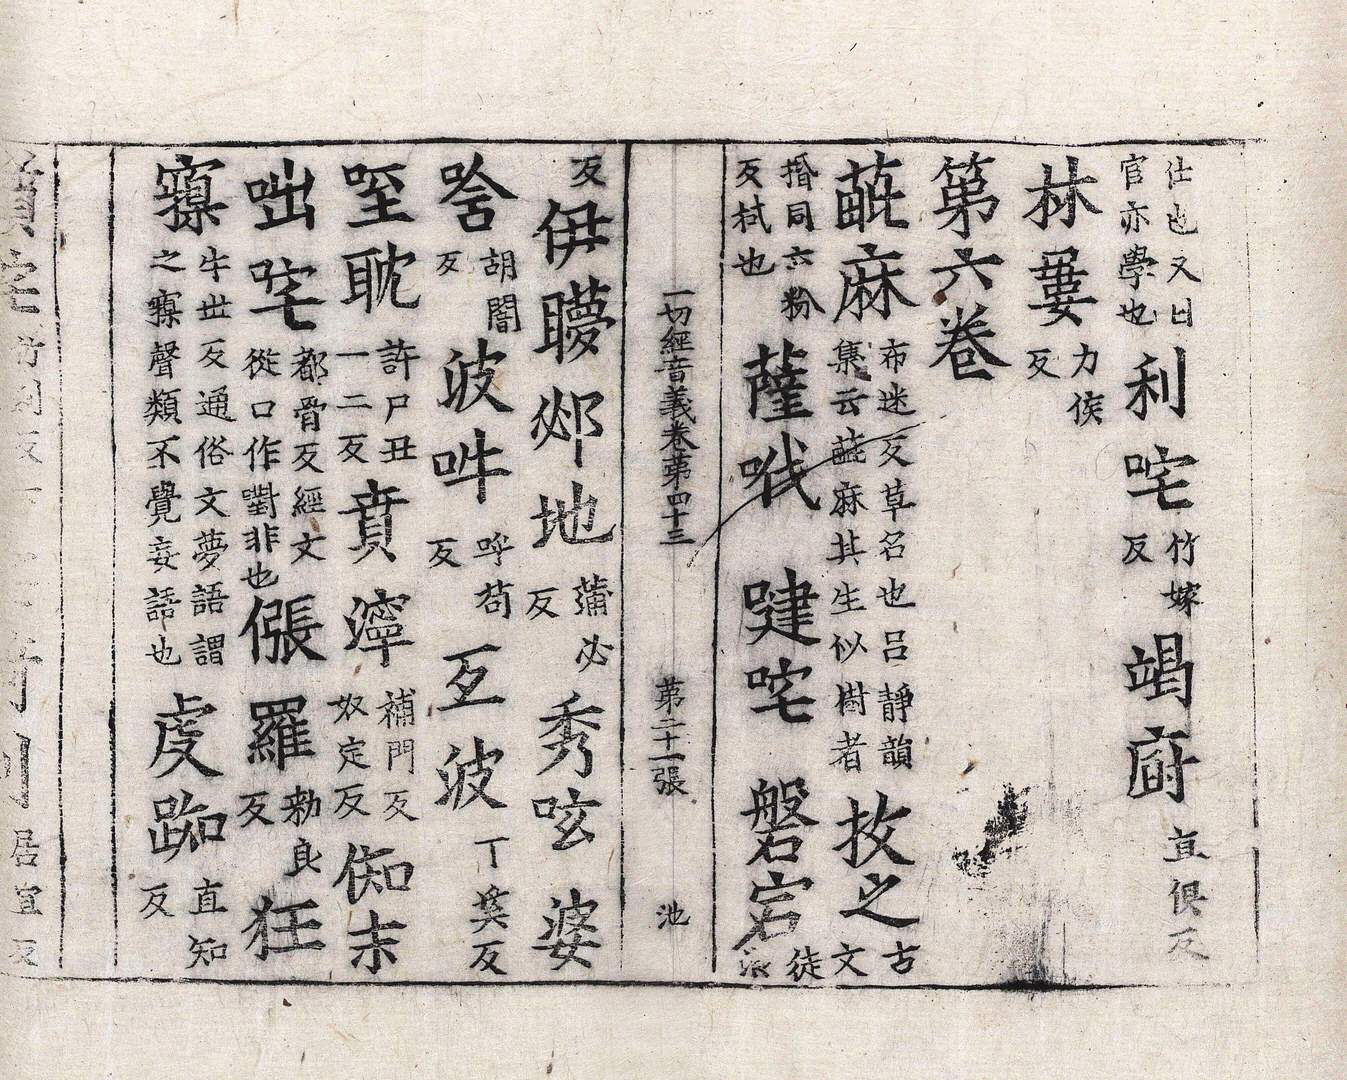 仕也又曰
官亦學也
利咤
竹嫁
反
竭㕑
直俱反
林婁
力侯
反
第六卷
蓖麻
布迷反草名也呂靜韻
集云蓖麻其生似樹者
抆之
古
文
揩同亦粉
反拭也
薩哦
睷咤
磐宕
徒
浪
一切經音義卷第四十三
第二十一張
池
反
伊瞹邲地
蒲必
反
秀呟婆
唅
胡闇
反
波吽
呼苟
反
互波
丁奚反
咥耽
許尸丑
一二反
賁濘
補門反
奴定反
㑛末
咄咤
都骨反經文
從口作嚉非也
倀羅
勑良
反
狂
寱
牛世反通俗文夢語謂
之寱聲類不覺妄語也
虔踟
直知
反
居宜反